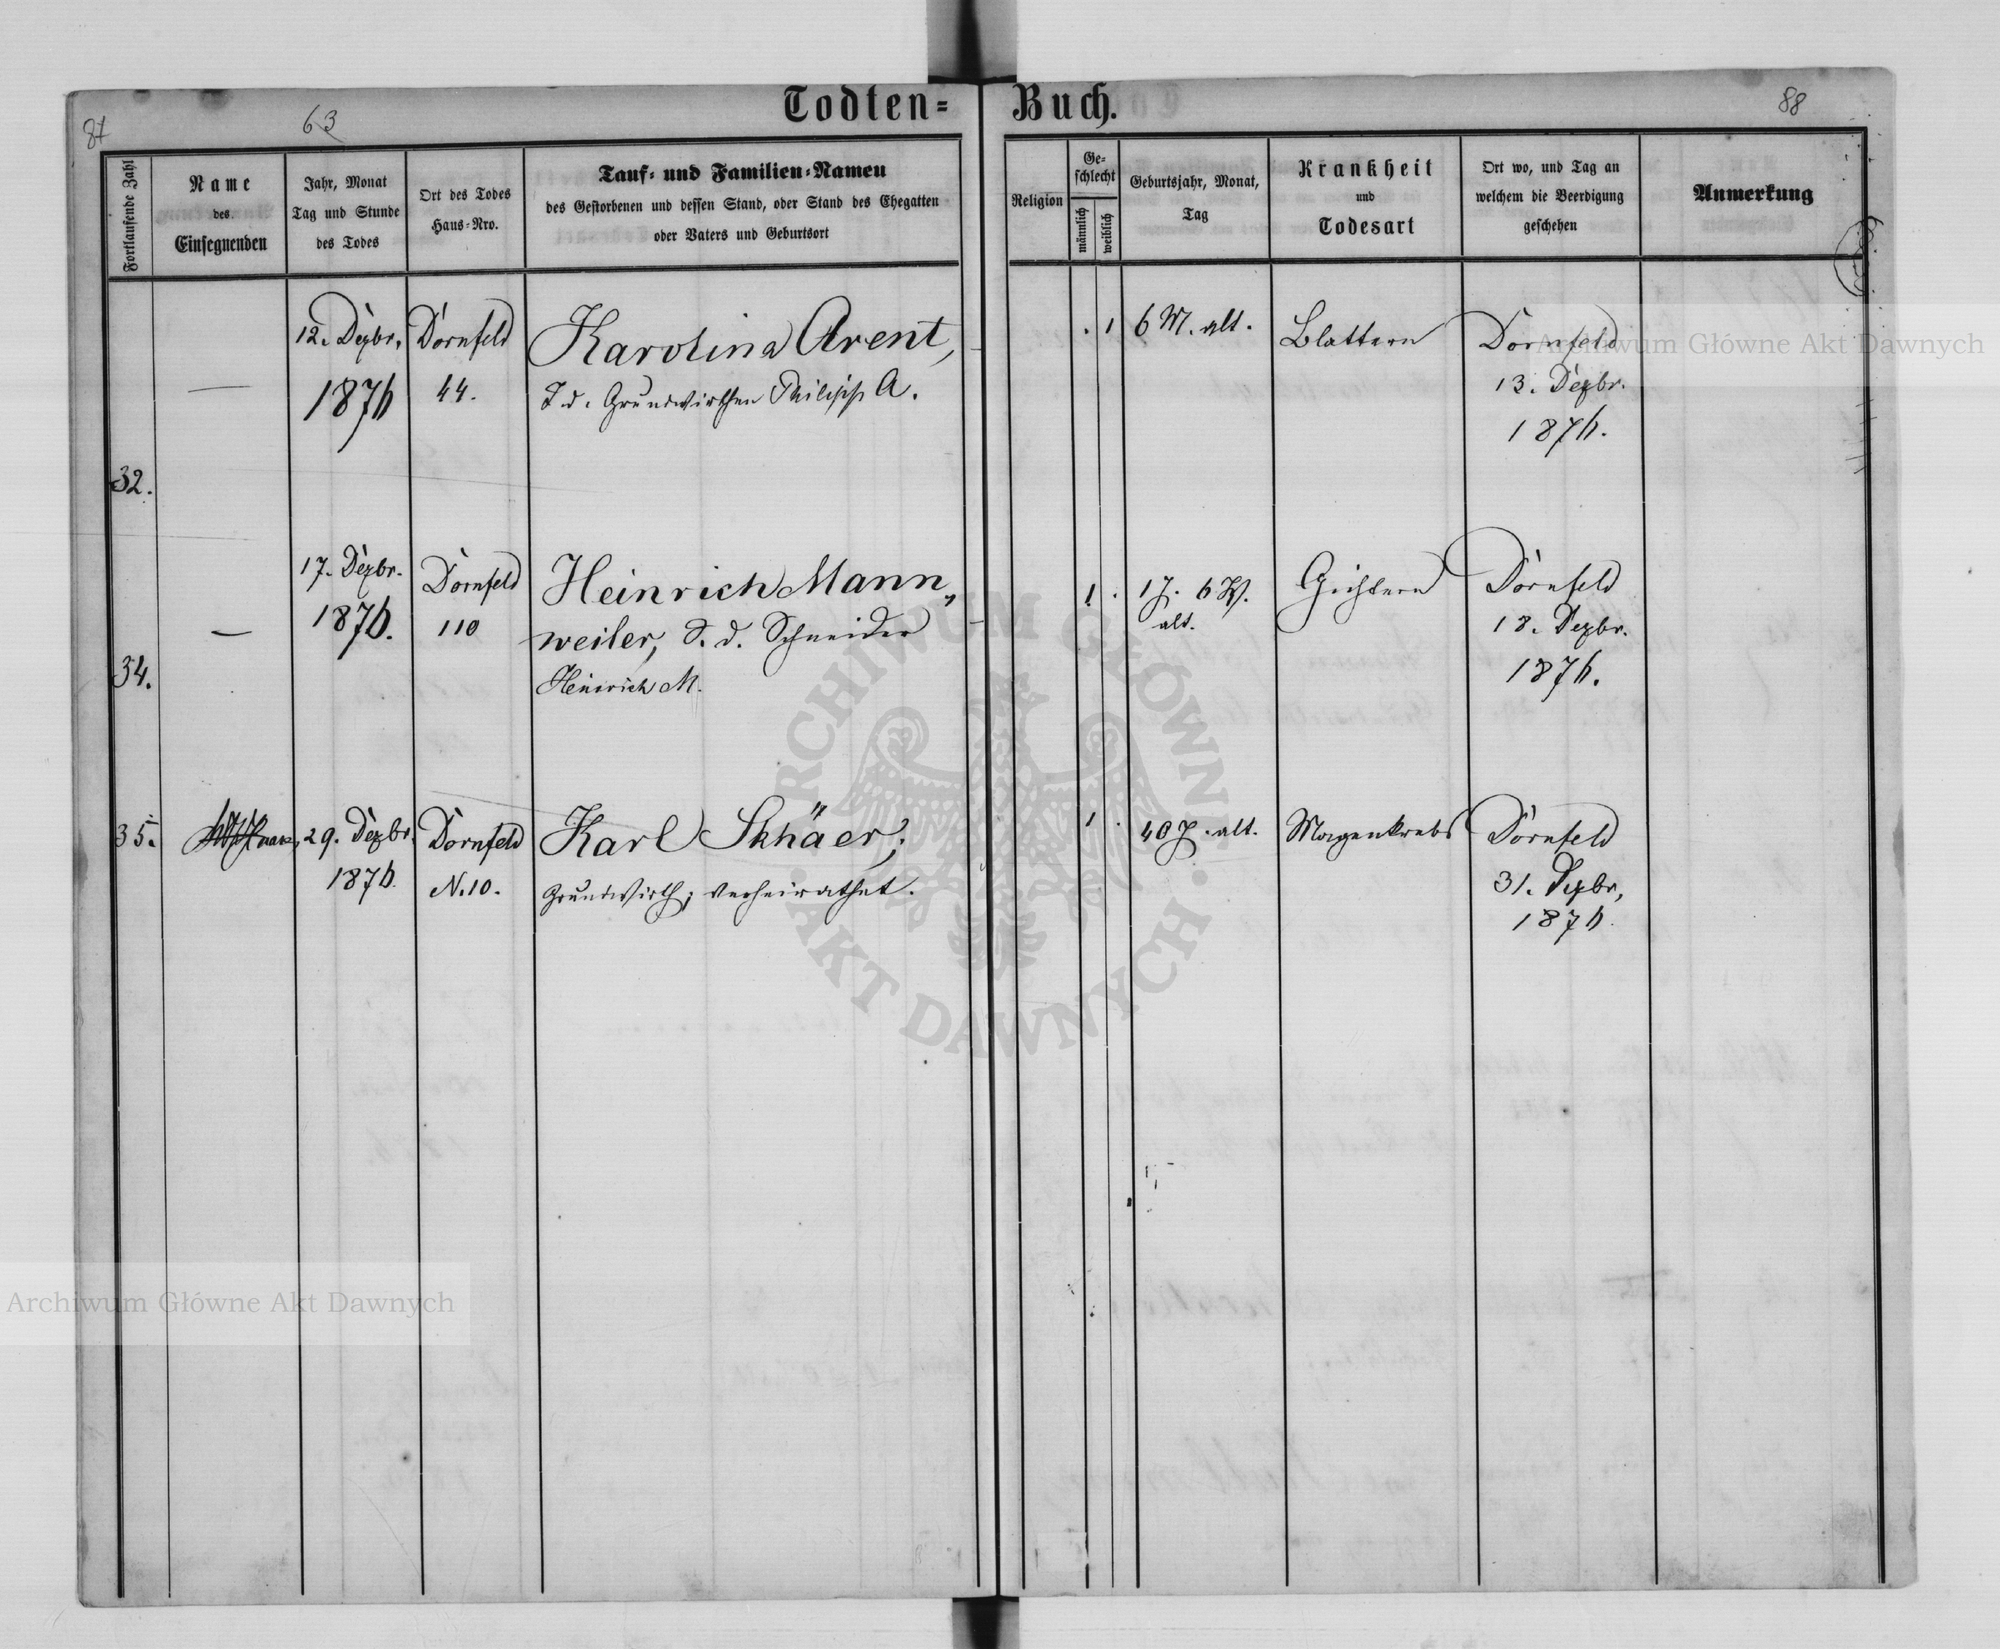 87
63
Todten=
Buch.
88
Fortlaufende Zahl
Name
des
Einsegnenden
Jahr, Monat
Tag und Stunde
des Todes
Ort des Todes
Haus=Nro.
Tauf= und Familien=Namen
des Gestorbenen und dessen Stand, oder Stand des Ehegatten
oder Vaters und Geburtsort
Religion
Ge=
schlecht
männlich
weiblich
Geburtsjahr, Monat,
Tag
Krankheit
und
Todesart
Ort wo, und Tag an
welchem die Beerdigung
geschehen
Anmerkung
32.
—
12. Dezbr.
1876
Dornfeld
44.
Karolina Arent,
T. d. Grundwirthen Philipp A.
. 1
6 M. alt.
Blattern
Dornfeld
13. Dezbr.
1876.
34.
—
17. Dezbr.
1876.
Dornfeld
110
Heinrich Mann„
weiler, S. d. Schneider
Heinrich M.
1 .
1 J. 6 W.
alt.
Dornfeld
18. Dezbr.
1876.
35.
29. Dezbr.
1876.
Dornfeld
N. 10.
Karl
Grundwirth; verheirathet.
1 .
40 J. alt.
Magenkrebs
Dornfeld
31. Dezbr,
1876.
Archiwum Główne Akt Dawnych
ARCHIWUM GŁÓWNE · AKT DAWNYCH ·
Archiwum Główne Akt Dawnych